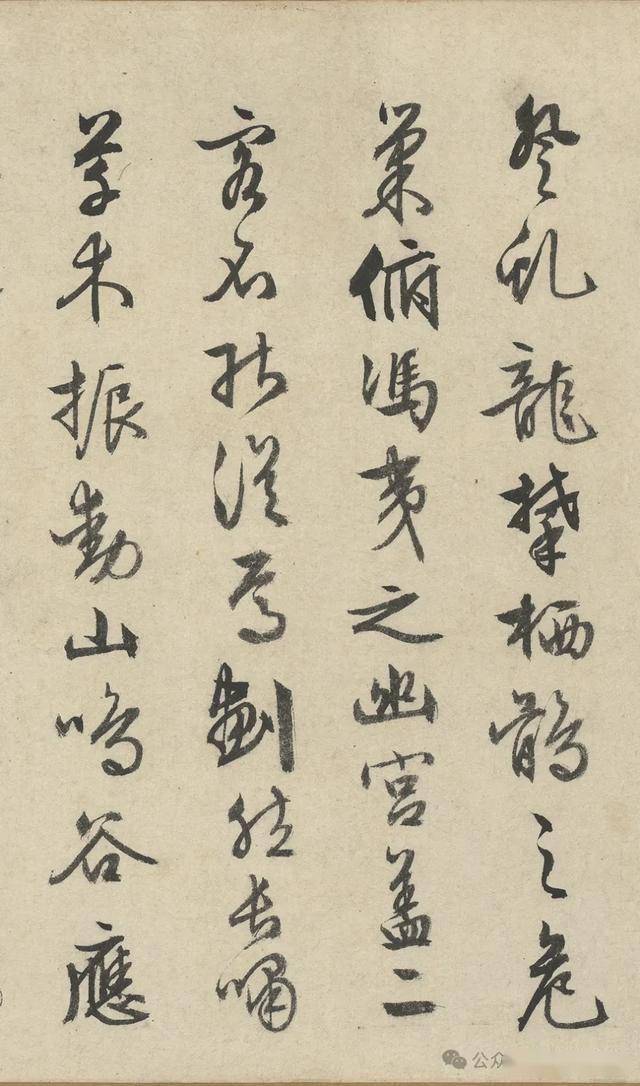 登虬龍攀栖鶻之危
巢俯馮夷之幽宮蓋二
客不能從焉劃然長嘯
草木振動山鳴谷應
公众